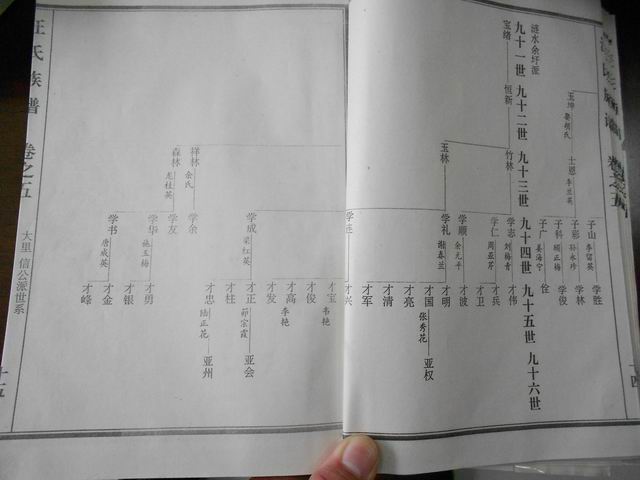 玉坤 娶胡氏
士恩 李兰英
子山 李留英
子彩 孙永珍
子科 顾正梅
子广 姜海宁
学胜
学林
学俊
佺
涟水余圩派
九十一世 九十二世 九十三世 九十四世 九十五世 九十六世
宝绪
恒新
竹林
玉林
祥林 余氏
森林 龙桂英
学志 刘梅青
学仁 周亚芹
学顺 余元平
学礼 谢春兰
学连
学成 梁红英
学余
学友
学华 施玉梅
学书 唐成英
才伟
才兵
才卫
才波
才明
才国 张秀花
才亮
才清
才军
才兴
才宝 韦艳
才俊
才高 李艳
才发
才正 茆宗霞
才柱
才忠 陆正花
才勇
才银
才金
才峰
亚权
亚会
亚州
汪氏族谱 卷之五
大里 信公派世系
十五
十四